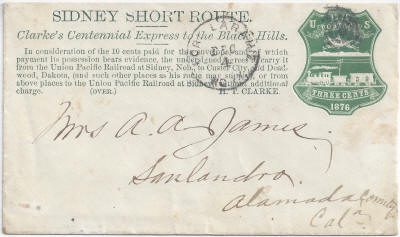 SIDNEY SHORT ROUTE.
Clarke's Centennial Express to the Black Hills.
In consideration of the 10 cents paid for the conveyance, of which
payment its possession bears evidence, the undersigned agrees to carry it
from the Union Pacific Railroad at Sidney, Neb., to Custer City, or Dead-
wood, Dakota, (and such other places as his note may supply), or from
above places to the Union Pacific Railroad at Sidney, without additional
charge. (OVER.) H. T. CLARKE.
DEC
U S
POSTAGE
THREE CENTS
1876
Mrs A. A. James.
Sanlandro.
Alamada County
Cal a